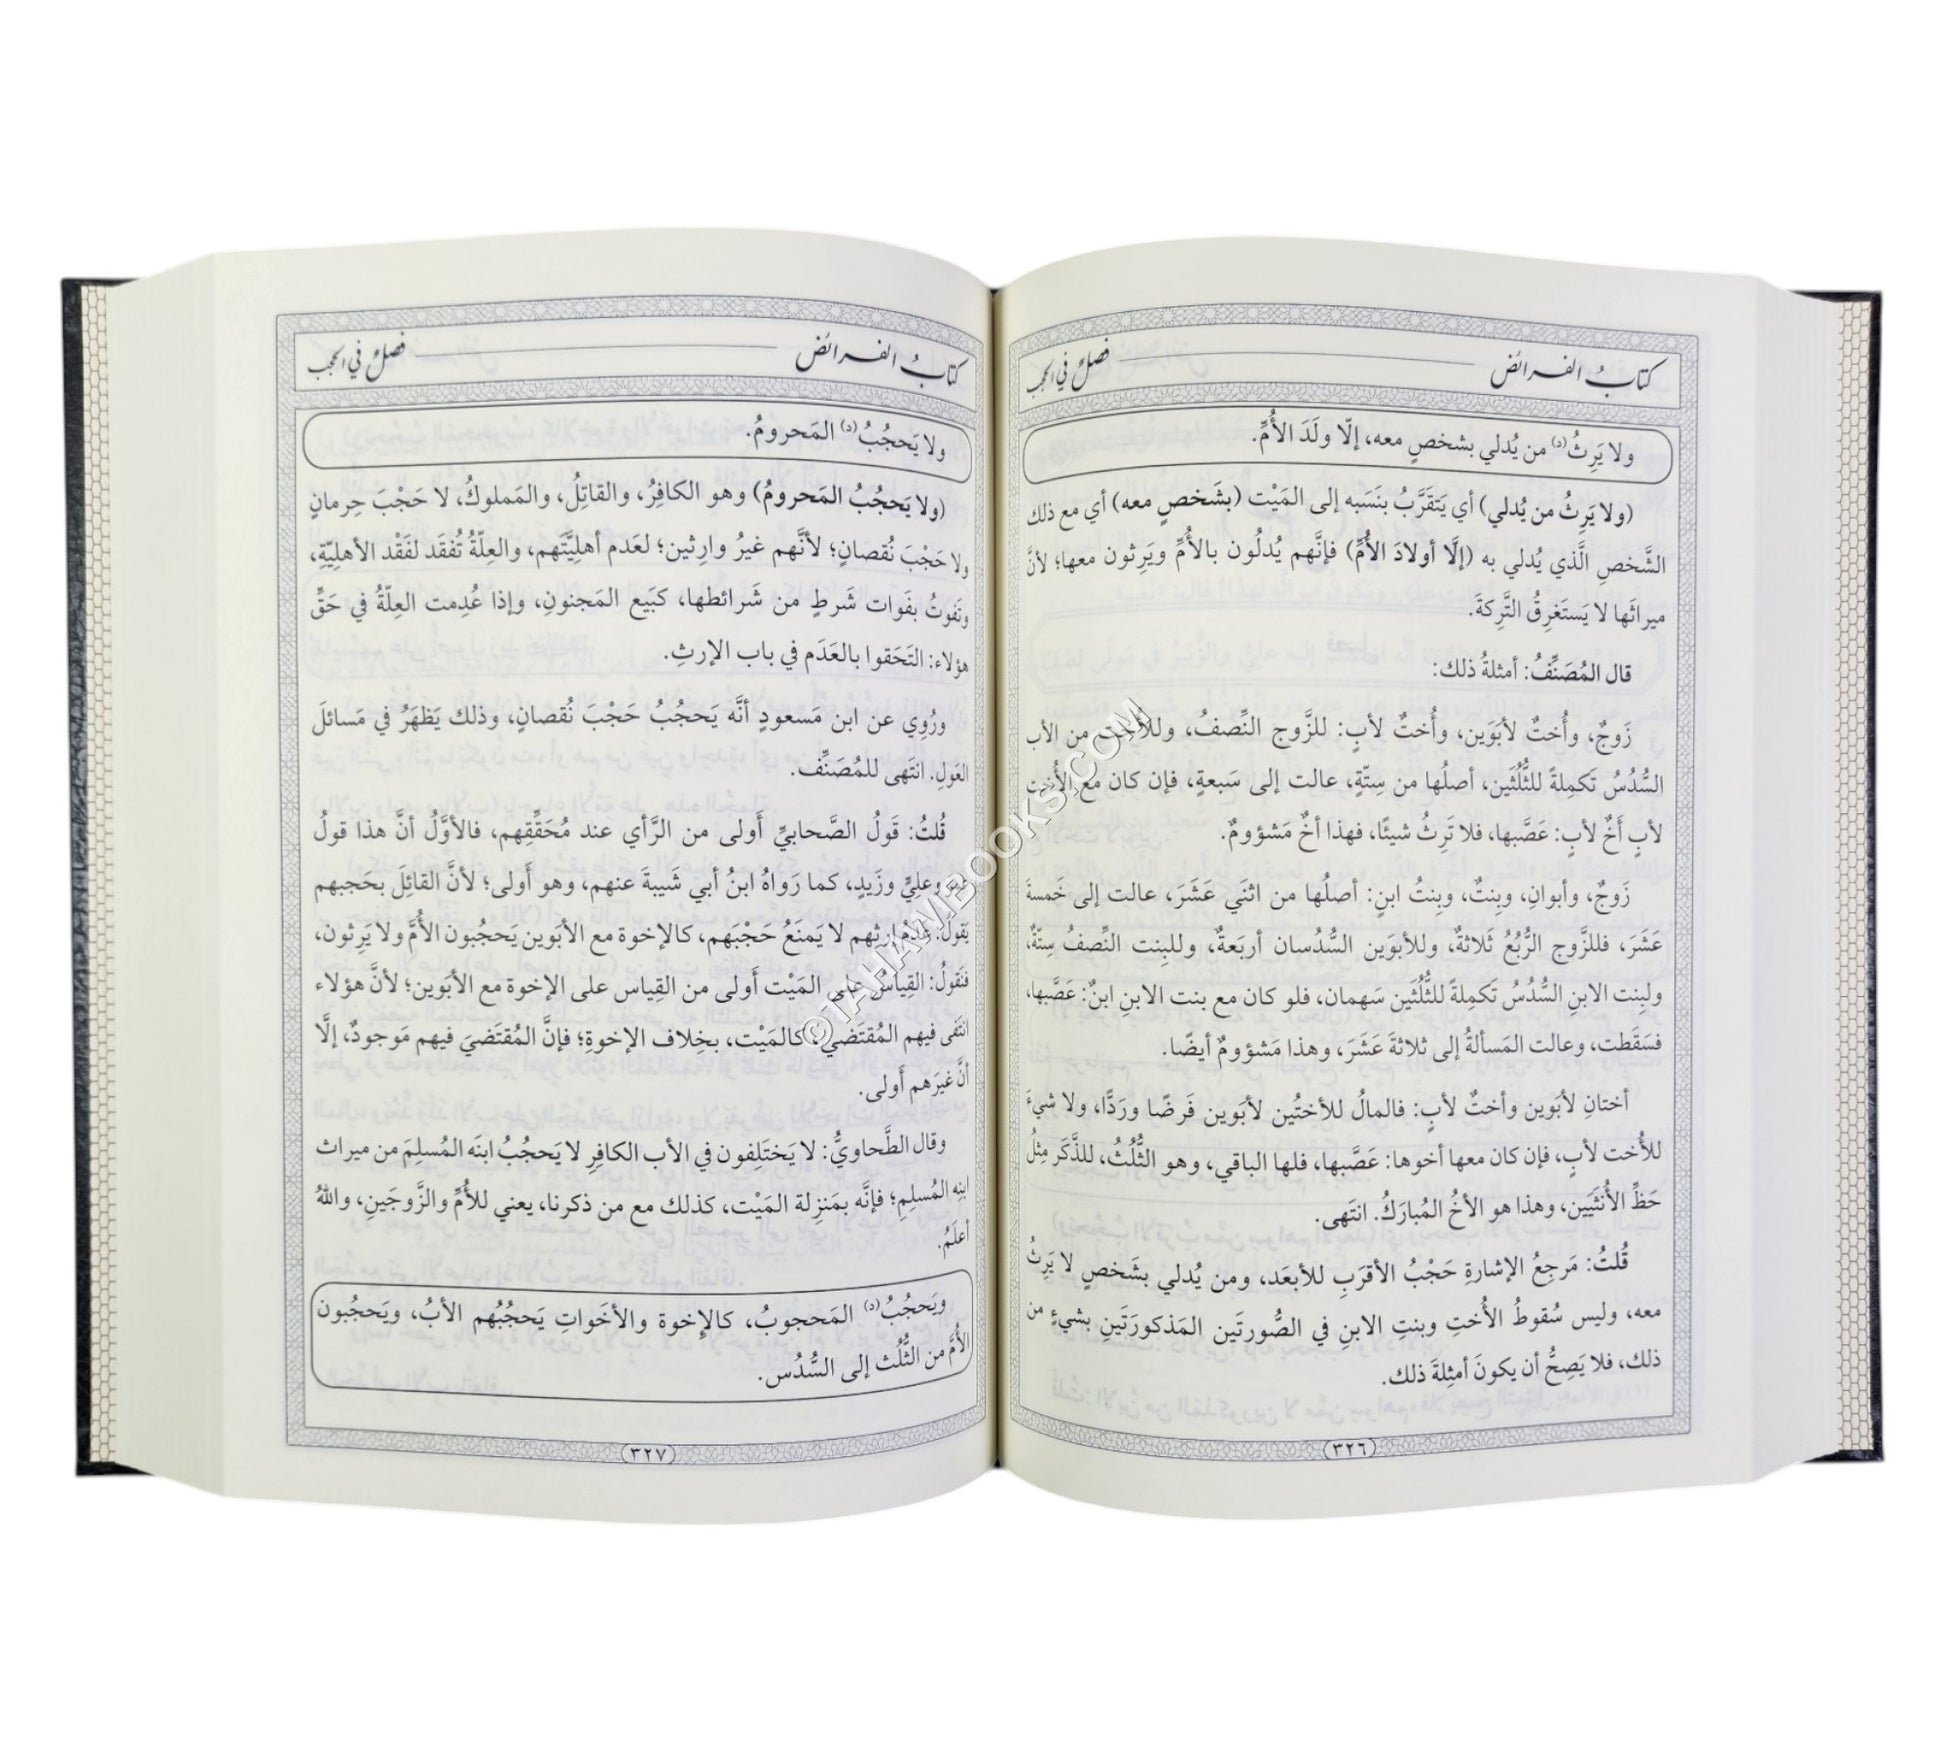 كتاب الفرائض فصل في الحجب
ولا يَرِثُ(د) من يُدلي بشخصٍ معه، إلّا ولَدَ الأُمِّ.
(ولا يَرِثُ من يُدلي) أي يَتقرَّبُ بنَسَبه إلى المَيْت (بشَخصٍ معه) أي مع ذلك
الشَّخصِ الَّذي يُدلي به (إلَّا أولادَ الأُمِّ) فإنَّهم يُدلُون بالأُمِّ ويَرِثون معها؛ لأنَّ
ميراثَها لا يَستَغرِقُ التَّرِكةَ.
قال المُصَنِّفُ: أمثلةُ ذلك:
زَوجٌ، وأُختٌ لأبَوَين، وأُختٌ لأبٍ: للزَّوج النِّصفُ، وللأُخت من الأب
السُّدُسُ تَكمِلةً للثُّلُثَين، أصلُها من سِتّةٍ، عالت إلى سَبعةٍ، فإن كان مع الأُخت
لأبٍ أخٌ لأبٍ: عَصَّبها، فلا تَرِثُ شيئًا، فهذا أخٌ مَشؤومٌ.
زَوجٌ، وأبوانِ، وبِنتٌ، وبِنتُ ابنٍ: أصلُها من اثنَي عَشَرَ، عالت إلى خَمسةَ
عَشَرَ، فللزَّوج الرُّبُعُ ثَلاثةٌ، وللأبَوَين السُّدُسان أربَعةٌ، وللبِنت النِّصفُ سِتّةٌ،
ولبِنت الابنِ السُّدُسُ تَكمِلةً للثُّلُثَين سَهمان، فلو كان مع بنت الابنِ ابنٌ: عَصَّبها،
فسَقَطت، وعالت المَسألةُ إلى ثلاثةَ عَشَرَ، وهذا مَشؤومٌ أيضًا.
أختانِ لأبَوين وأختٌ لأبٍ: فالمالُ للأختَين لأبَوين فَرضًا ورَدًّا، ولا شيءَ
للأُخت لأبٍ، فإن كان معها أخوها: عَصَّبها، فلها الباقي، وهو الثُّلُثُ، للذَّكَر مِثلُ
حَظِّ الأُنثَيَين، وهذا هو الأخُ المُبارَكُ. انتَهى.
قُلتُ: مَرجِعُ الإشارةِ حَجْبُ الأقرَبِ للأبعَد، ومن يُدلي بشَخصٍ لا يَرِثُ
معه، وليس سُقوطُ الأُختِ وبنتِ الابنِ في الصُّورتَين المَذكورَتَينِ بشيءٍ من
ذلك، فلا يَصِحُّ أن يكونَ أمثِلةَ ذلك.
(٣٢٦)
كتاب الفرائض فصل في الحجب
ولا يَحجُبُ(د) المَحرومُ.
(ولا يَحجُبُ المَحرومُ) وهو الكافِرُ، والقاتِلُ، والمَملوكُ، لا حَجْبَ حِرمانٍ
ولا حَجْبَ نُقصانٍ؛ لأنَّهم غيرُ وارِثين؛ لعَدم أهليَّتَهم، والعِلّةُ تُفقَد لفَقْد الأهليّةِ،
وتَفوتُ بفَوات شَرطٍ من شَرائطها، كبَيع المَجنونِ، وإذا عُدِمت العِلّةُ في حَقِّ
هؤلاء: التَحَقوا بالعَدَم في باب الإرثِ.
ورُوِي عن ابن مَسعودٍ أنَّه يَحجُبُ حَجْبَ نُقصانٍ، وذلك يَظهَرُ في مَسائلَ
العَولِ. انتَهى للمُصَنِّف.
قُلتُ: قَولُ الصَّحابيِّ أولى من الرَّأي عند مُحَقِّقِهم، فالأوَّلُ أنَّ هذا قولُ
عُمرَ وعليٍّ وزَيدٍ، كما رَواهُ ابنُ أبي شَيبةَ عنهم، وهو أولى؛ لأنَّ القائِلَ بحَجبهم
يَقولُ: عَدَمُ إرثِهم لا يَمنَعُ حَجْبَهم، كالإخوة مع الأبَوين يَحجُبون الأُمَّ ولا يَرِثون،
فنَقولُ: القِياسُ على المَيْت أولى من القِياس على الإخوة مع الأبَوين؛ لأنَّ هؤلاء
انتَفى فيهم المُقتَضي، كالمَيْت، بخِلاف الإخوةِ؛ فإنَّ المُقتَضيَ فيهم مَوجودٌ، إلَّا
أنَّ غيرَهم أولى.
وقال الطَّحاويُّ: لا يَختَلِفون في الأب الكافِرِ لا يَحجُبُ ابنَه المُسلِمَ من ميراث
ابنِه المُسلِمِ؛ فإنَّه بمَنزِلة المَيْت، كذلك مع من ذكرنا، يعني للأُمِّ والزَّوجَينِ، واللهُ
أعلَمُ.
ويَحجُبُ(د) المَحجوبُ، كالإخوة والأخَواتِ يَحجُبُهم الأبُ، ويَحجُبون
الأُمَّ من الثُّلُث إلى السُّدُس.
(٣٢٧)
©TAHAWIBOOKS.COM